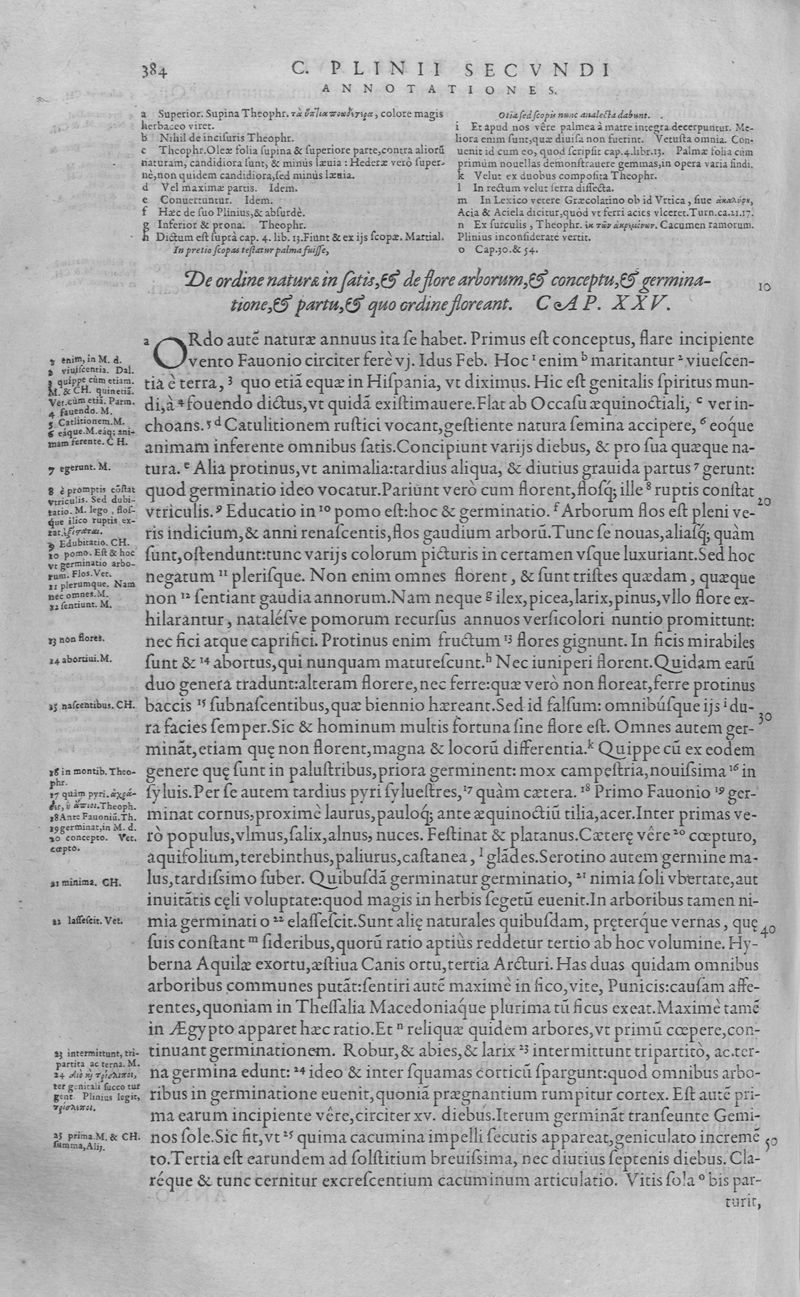 384 C. PLINII SECVNDI
ANNOTATIONES.
a Superior. Supina Theophr. colore magis
herbaceo viret.
b Nihil de incisuris Theophr.
c Theophr. Oleæ folia supina & superiore parte, contra aliorũ
naturam, candidiora sunt, & minùs læuia: Hederæ verò super-
nè, non quidem candidiora, sed minùs læuia.
d Vel maximæ partis. Idem.
e Conuertuntur. Idem.
f Hæc de suo Plinius, & absurdè.
g Inferior & prona. Theophr.
h Dictum est suprà cap. 4. lib. 13. Fiunt & ex ijs scopæ. Martial.
In pretio scopas testatur palma fuisse,
Otia sed scopis nunc analecta dabunt.
i Et apud nos vêre palmea à matre integra decerpuntur. Me-
liora enim sunt, quæ diuisa non fuerint. Vetusta omnia. Con-
uenit id cum eo, quod scripsit cap. 4. libr. 13. Palmæ folia cùm
primùm nouellas demonstrauere gemmas, in opera varia findi.
k Velut ex duobus composita Theophr.
l In rectum velut serra dissecta.
m In Lexico vetere Græcolatino ob id Vrtica, siue
Acia & Aciela dicitur, quòd vt ferri acies vlceret. Turn. ca. 21. 17.
n Ex surculis, Theophr. Cacumen ramorum.
Plinius inconsideratè vertit.
o Cap. 30. & 54.
De ordine naturæ in satis, & de flore arborum, & conceptu, & germina-
tione, & partu, & quo ordine floreant. CAP. XXV.
10
a ORdo autẽ naturæ annuus ita se habet. Primus est conceptus, flare incipiente
vento Fauonio circiter ferè vj. Idus Feb. Hoc ¹ enim ᵇ maritantur ² viuescen-
tia è terra, ³ quo etiã equæ in Hispania, vt diximus. Hic est genitalis spiritus mun-
di, à ⁴ fouendo dictus, vt quidã existimauere. Flat ab Occasu æquinoctiali, ᶜ ver in-
choans. ⁵ ᵈ Catulitionem rustici vocant, gestiente natura semina accipere, ⁶ eoque
animam inferente omnibus satis. Concipiunt varijs diebus, & pro sua quæque na-
tura. ᵉ Alia protinus, vt animalia: tardius aliqua, & diutius grauida partus ⁷ gerunt:
quod germinatio ideo vocatur. Pariunt verò cum florent, flosq; ille ⁸ ruptis constat
vtriculis. ⁹ Educatio in ¹⁰ pomo est: hoc & germinatio. ᶠ Arborum flos est pleni ve-
20
ris indicium, & anni renascentis, flos gaudium arborũ. Tunc se nouas, aliasq; quàm
sunt, ostendunt: tunc varijs colorum picturis in certamen vsque luxuriant. Sed hoc
negatum ¹¹ plerisque. Non enim omnes florent, & sunt tristes quædam, quæque
non ¹² sentiant gaudia annorum. Nam neque ᵍ ilex, picea, larix, pinus, vllo flore ex-
hilarantur, natalésve pomorum recursus annuos versicolori nuntio promittunt:
nec fici atque caprifici. Protinus enim fructum ¹³ flores gignunt. In ficis mirabiles
sunt & ¹⁴ abortus, qui nunquam maturescunt. ʰ Nec iuniperi florent. Quidam earũ
duo genera tradunt: alteram florere, nec ferre: quæ verò non floreat, ferre protinus
baccis ¹⁵ subnascentibus, quæ biennio hæreant. Sed id falsum: omnibúsque ijs ⁱ du-
30
ra facies semper. Sic & hominum multis fortuna sine flore est. Omnes autem ger-
minãt, etiam quę non florent, magna & locorũ differentia. ᵏ Quippe cũ ex eodem
genere quę sunt in palustribus, priora germinent: mox campestria, nouissima ¹⁶ in
syluis. Per se autem tardius pyri syluestres, ¹⁷ quàm cætera. ¹⁸ Primo Fauonio ¹⁹ ger-
minat cornus, proximè laurus, pauloq; ante æquinoctiũ tilia, acer. Inter primas ve-
rò populus, vlmus, salix, alnus, nuces. Festinat & platanus. Cæterę vêre ²⁰ cœpturo,
aquifolium, terebinthus, paliurus, castanea, ˡ glãdes. Serotino autem germine ma-
lus, tardissimo suber. Quibusdã germinatur germinatio, ²¹ nimia soli vbertate, aut
inuitãtis cęli voluptate: quod magis in herbis segetũ euenit. In arboribus tamen ni-
mia germinatio ²² elassescit. Sunt alię naturales quibusdam, pręterque vernas, quę
40
suis constant ᵐ sideribus, quorũ ratio aptiùs reddetur tertio ab hoc volumine. Hy-
berna Aquilæ exortu, æstiua Canis ortu, tertia Arcturi. Has duas quidam omnibus
arboribus communes putãt: sentiri autẽ maximè in fico, vite, Punicis: causam affe-
rentes, quoniam in Thessalia Macedoniaque plurima tũ ficus exeat. Maximè tamẽ
in Ægypto apparet hæc ratio. Et ⁿ reliquæ quidem arbores, vt primũ cœpere, con-
tinuant germinationem. Robur, & abies, & larix ²³ intermittunt tripartitò, ac ter-
na germina edunt: ²⁴ ideo & inter squamas corticũ spargunt: quod omnibus arbo-
ribus in germinatione euenit, quoniã prægnantium rumpitur cortex. Est autẽ pri-
ma earum incipiente vêre, circiter xv. diebus. Iterum germinãt transeunte Gemi-
nos sole. Sic fit, vt ²⁵ quima cacumina impelli secutis appareat, geniculato incremẽ
50
to. Tertia est earundem ad solstitium breuissima, nec diutius septenis diebus. Cla-
réque & tunc cernitur excrescentium cacuminum articulatio. Vitis sola ᵒ bis par-
turit,
1 enim, in M. d.
2 viuiscentia. Dal.
3 quippe cùm etiam.
M. & CH. quin etiã.
Ver. cùm etiã. Parm.
4 fauendo. M.
5 Catlitionem. M.
6 eáque. M. eáq; ani-
mam ferente. CH.
7 egerunt. M.
8 è promptis cõstat
vtriculis. Sed dubi-
tatio. M. lego, flos-
que ilico ruptis ex-
tat.
9 Edubitatio. CH.
10 pomo. Est & hoc
vt germinatio arbo-
rum. Flos. Vet.
11 plerumque. Nam
nec omnes. M.
12 sentiunt. M.
13 non flores.
14 abortiui. M.
15 nascentibus. CH.
16 in montib. Theo-
phr.
17 quàm pyri. Theoph.
18 Ante Fauoniũ. Th.
19 germinat, in M. d.
20 concepto. Vet.
cœpto.
21 minima. CH.
22 lassescit. Vet.
23 intermittunt, tri-
partita ac terna. M.
24
ter genitali succo tur
gent. Plinius legit,
25 prima. M. & CH.
summa, Alij.